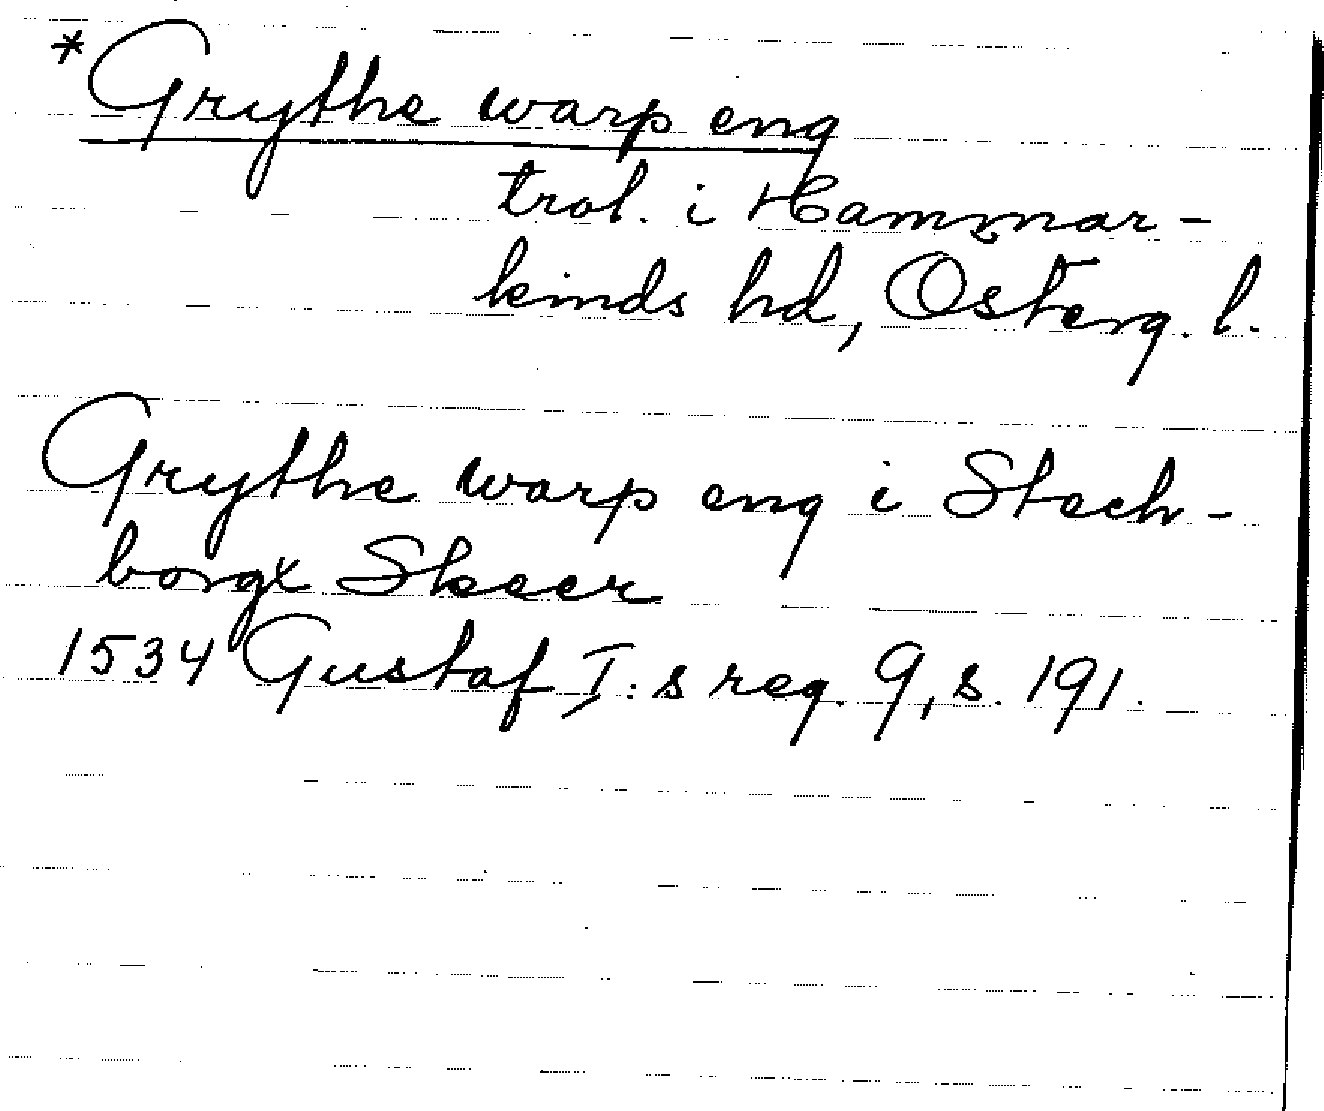 *Grythe warp eng
trol. i Hammar-
kinds hd, Österg. l.
Grythe warp eng i Stech-
borgx Skeer
1534 Gustaf I:s reg. 9, s. 191.